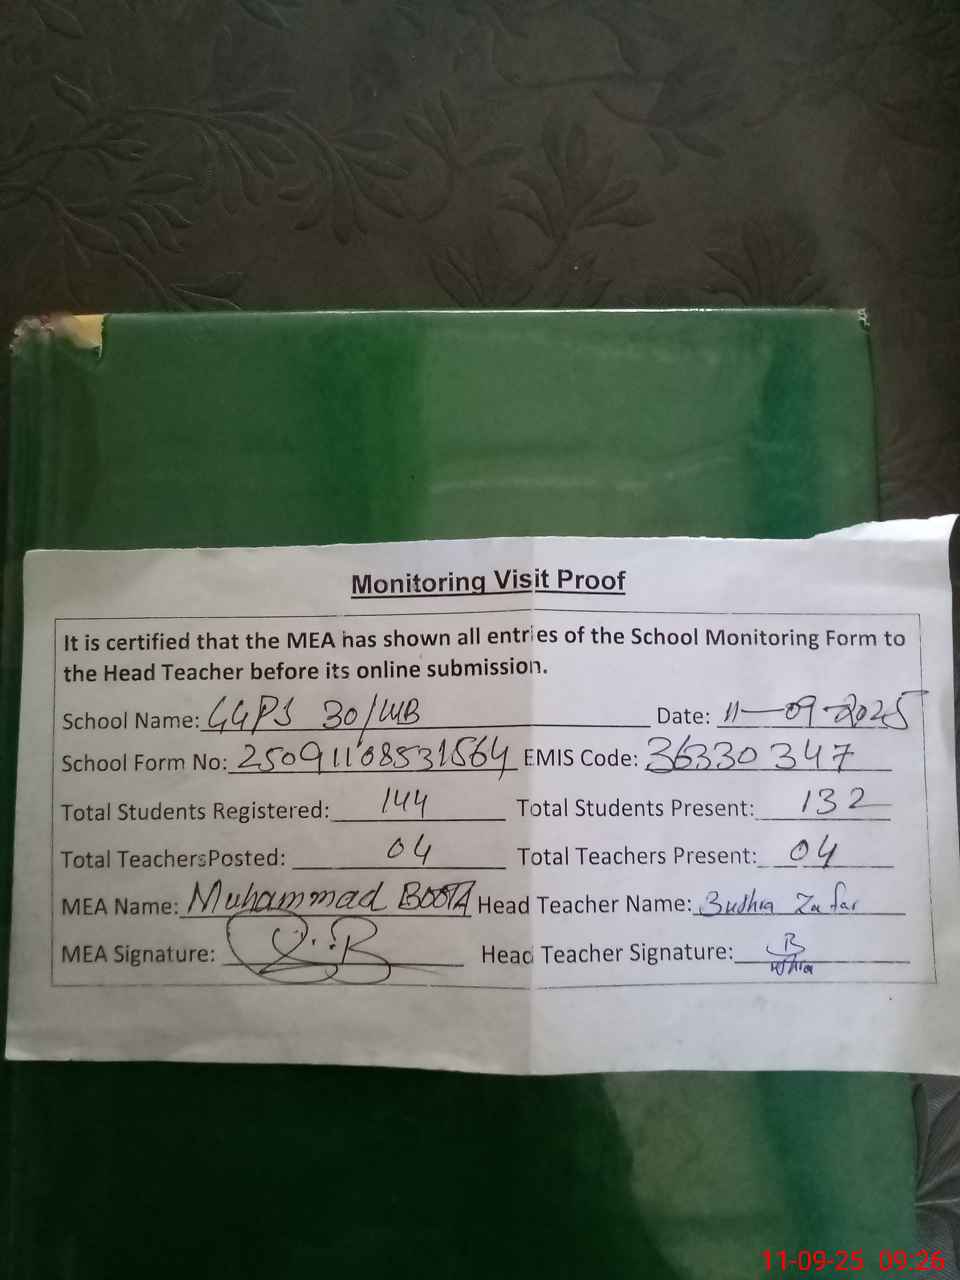 Monitoring Visit Proof
It is certified that the MEA has shown all entries of the School Monitoring Form to
the Head Teacher before its online submission.
School Name: GGPS 30/WB Date: 11-09-2025
School Form No: 25091108531564 EMIS Code: 36330347
Total Students Registered: 144 Total Students Present: 132
Total Teachers Posted: 04 Total Teachers Present: 04
MEA Name: Muhammad BOOTA Head Teacher Name: Bushra Zafar
MEA Signature: Head Teacher Signature:
11-09-25 09:26